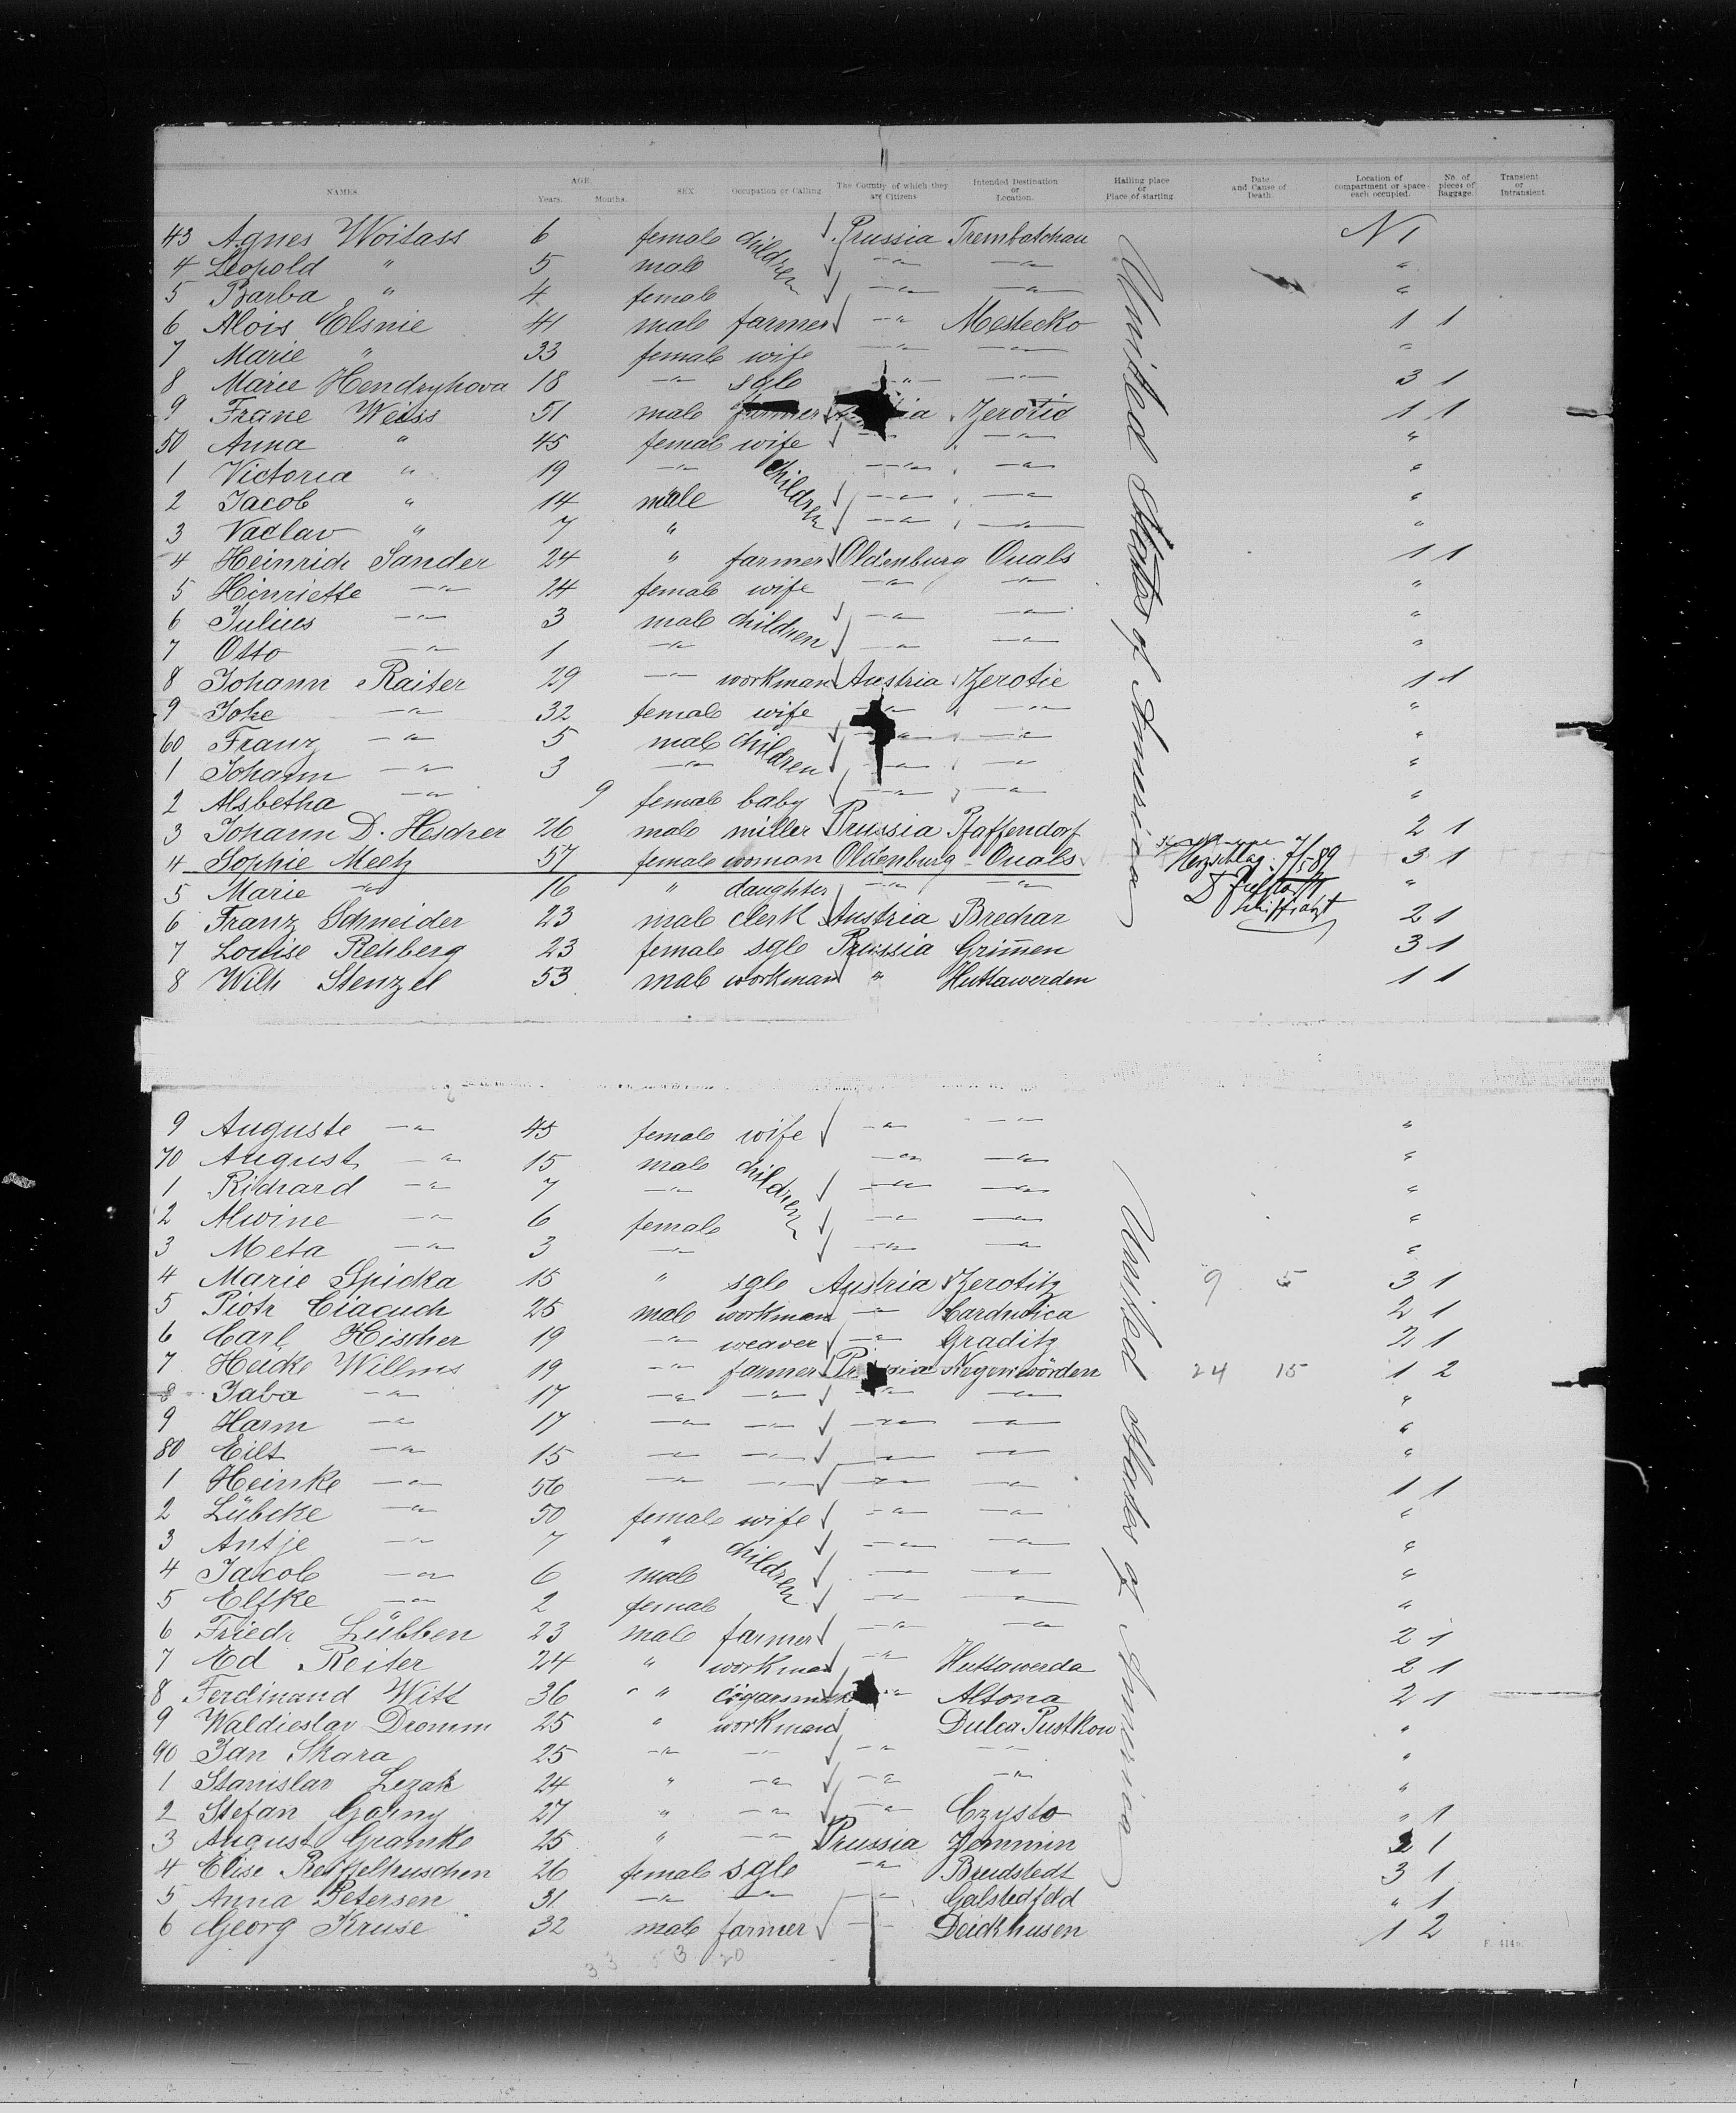 NAMES. AGE. Years. Months. SEX. Occupation or Calling The Country of which they are Citizens Intended Destination or Location. Halling place or Place of starting. Date and Cause of Death. Location of compartment or space each occupied. No. of pieces of Baggage. Transient or Intransient.
43 Agnes Woitass 6 female children Prussia Trembatschau N 1
4 Leopold " 5 male —"— —"— "
5 Barba " 4 female —"— —"— "
6 Alois Elsnie 41 male farmer —"— Mestecko 1 1
7 Marie " 33 female wife —"— —"— "
8 Marie Hendryhova 18 —"— sgle —"— —"— 3 1
9 Franc Weiss 51 male farmer Zerotic 1 1
50 Anna " 45 female wife —"— —"— "
1 Victoria " 19 —"— children —"— —"— "
2 Jacob " 14 male —"— —"— "
3 Vaclav " 7 " —"— —"— "
4 Heinrich Sander 24 " farmer Oldenburg Ovals 1 1
5 Hinriette —"— 24 female wife —"— —"— "
6 Julius —"— 3 male children —"— —"— "
7 Otto —"— 1 —"— —"— —"— "
8 Johann Raiter 29 —"— workman Austria Zerotic 1 1
9 Johe —"— 32 female wife —"— —"— "
60 Franz —"— 5 male children —"— —"— "
1 Johann —"— 3 —"— —"— —"— "
2 Alsbetha —"— 9 female baby —"— —"— "
3 Johann D. Hescher 26 male miller Prussia Pfaffendorf 2 1
4 Sophie Meetz 57 female woman Oldenburg Ovals Herzschlag 7/5 89 3 1
5 Marie —"— 16 " daughter —"— —"— Schiffsarzt "
6 Franz Schneider 23 male clerk Austria Brechar 2 1
7 Louise Rehberg 23 female sgle Prussia Grimmen 3 1
8 Wilh Stenzel 53 male workman " Huttawerden 1 1
United States of America
9 Auguste —"— 45 female wife —"— —"— "
70 August —"— 15 male children —"— —"— "
1 Richard —"— 7 —"— —"— —"— "
2 Alwine —"— 6 female —"— —"— "
3 Meta —"— 3 —"— —"— —"— "
4 Marie Spicka 15 " sgle Austria Zerotitz 9 5 3 1
5 Piotr Ciacuch 25 male workman —"— Cardudica 2 1
6 Carl Hischer 19 —"— weaver —"— Graditz 2 1
7 Heicke Willms 19 —"— farmer Prussia Negenwörden 24 15 1 2
8 Jaba —"— 17 —"— —"— —"— —"— "
9 Harm —"— 17 —"— —"— —"— —"— "
80 Eilt —"— 15 —"— —"— —"— —"— "
1 Heinke —"— 56 —"— —"— —"— —"— 1 1
2 Lübcke —"— 50 female wife —"— —"— "
3 Antje —"— 7 " children —"— —"— "
4 Jacob —"— 6 male —"— —"— "
5 Elfke —"— 2 female —"— —"— "
6 Friedr Lübben 23 male farmer —"— —"— 2 1
7 Ed Reiter 24 " workman —"— Huttawerda 2 1
8 Ferdinand Witt 36 " " —"— Altona 2 1
9 Waldieslav Dromm 25 " workman Dulca Pustkow "
90 Jan Skara 25 —"— —"— —"— —"— "
1 Stanislav Lezak 24 " —"— —"— —"— "
2 Stefan Gorny 27 " —"— —"— Czysto " 1
3 August Gramke 25 " —"— Prussia Demmin 2 1
4 Elise 26 female sgle —"— Bredstedt 3 1
5 Anna Petersen 31 —"— —"— —"— Galstedfeld " 1
6 Georg Kruse 32 male farmer —"— Deickhusen 1 2
United States of America
33 53 20